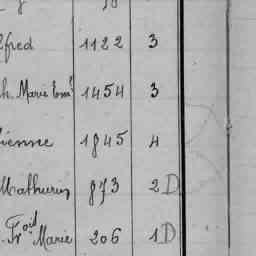 lfred 1122 3
h Marie Em.el 1454 3
ienne 1845 4
Mathurin 873 2 D
Fr.ois Marie 206 1 D